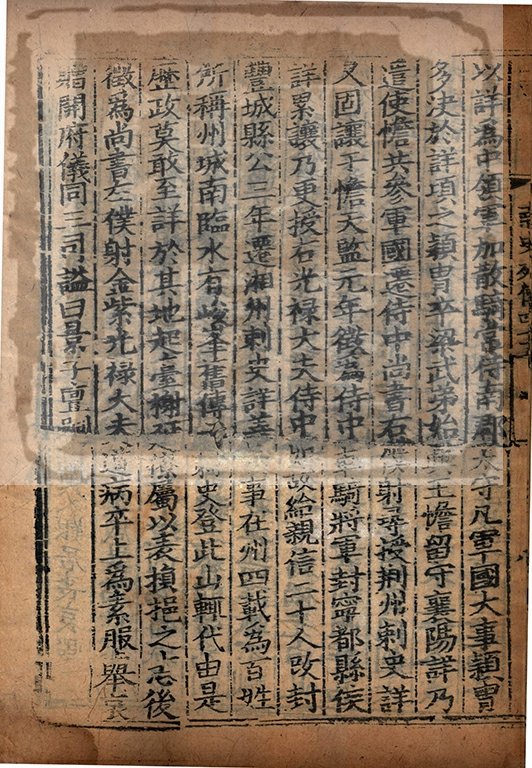 以詳為中領軍加散騎常侍南郡太守凡軍國大事穎胄
多決於詳項之穎胄卒梁武弟始興王憺留守襄陽詳乃
遣使憺共參軍國遷侍中尚書右僕射尋授荆州刺史詳
又固讓于憺天監元年徵為侍中車騎將軍封寧都縣侯
詳累讓乃更授右光禄大夫侍中如故給親信二十人改封
豐城縣公三年遷湘州刺史詳善吏事在州四載為百姓
所稱州城南臨水有峻峯舊傳云刺史登此山輙代由是
歷政莫敢至詳於其地起臺榭延僚屬以表損挹之志後
徵為尚書左僕射金紫光禄大夫道病卒上為素服舉哀
贈開府儀同三司謚曰景子亶嗣